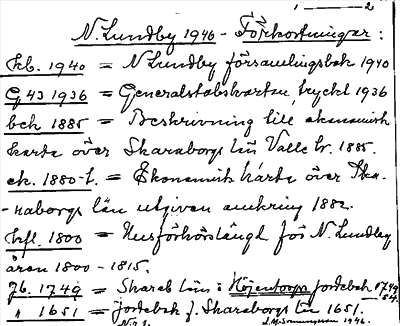 1 — 2
N. Lundby 1946 - Förkortningar:
kb. 1940 = N Lundby församlingsbok 1940
G 43 1936 = Generalstabskartan, tryckt 1936
bek 1885 = Beskrivning till ekonomisk
karta över Skaraborgs län Valle hr. 1885.
ek. 1880-t. = Ekonomisk karta över Ska-
-raborgs län utgiven omkring 1882.
hfl. 1800 = Husförhörslängd för N. Lundby
åren 1800 - 1815.
Jb. 1749 = Skarab län: Höjentorps jordebok 1749
" 1651 = Jordebok f. Skaraborgs län 1651.
1946.